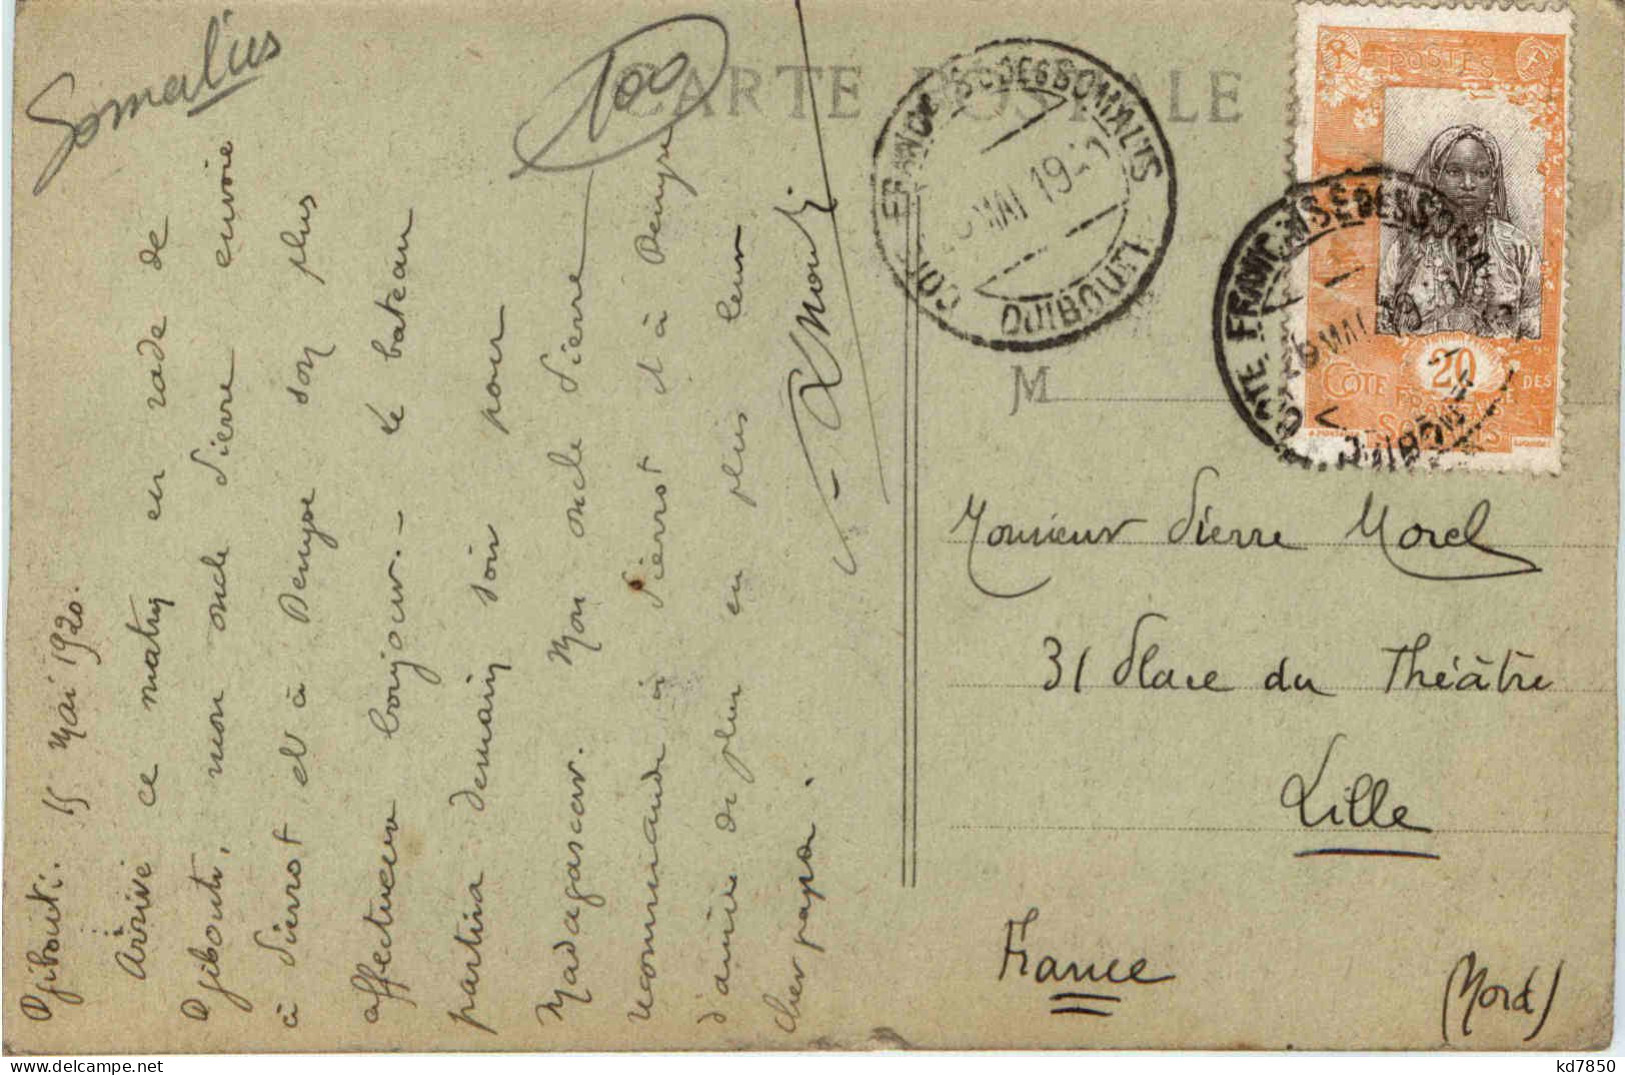 Somalis
100
CARTE POSTALE
COTE FRANCAISE DES SOMALIS
MAI 19
DJIBOUTI
POSTES
20
COTE FRANCAISE DES
SOMALIS
COTE FRANCAISE DES SOMALIS
MAI 19
DJIBOUTI
Djibouti. 15 Mai 1920.
Arrivé ce matin en rade de
Djibouti, mon oncle Pierre envoie
à Pierrot et à Denyse son plus
affectueux bonjour. – Le bateau
partira demain soir pour
Madagascar. Mon oncle Pierre
recommande à Pierrot et à Denyse
d'aimer de plus en plus leur
cher papa.
M
Monsieur Pierre Morel
31 Place du Théâtre
Lille
France
(Nord)
kd7850